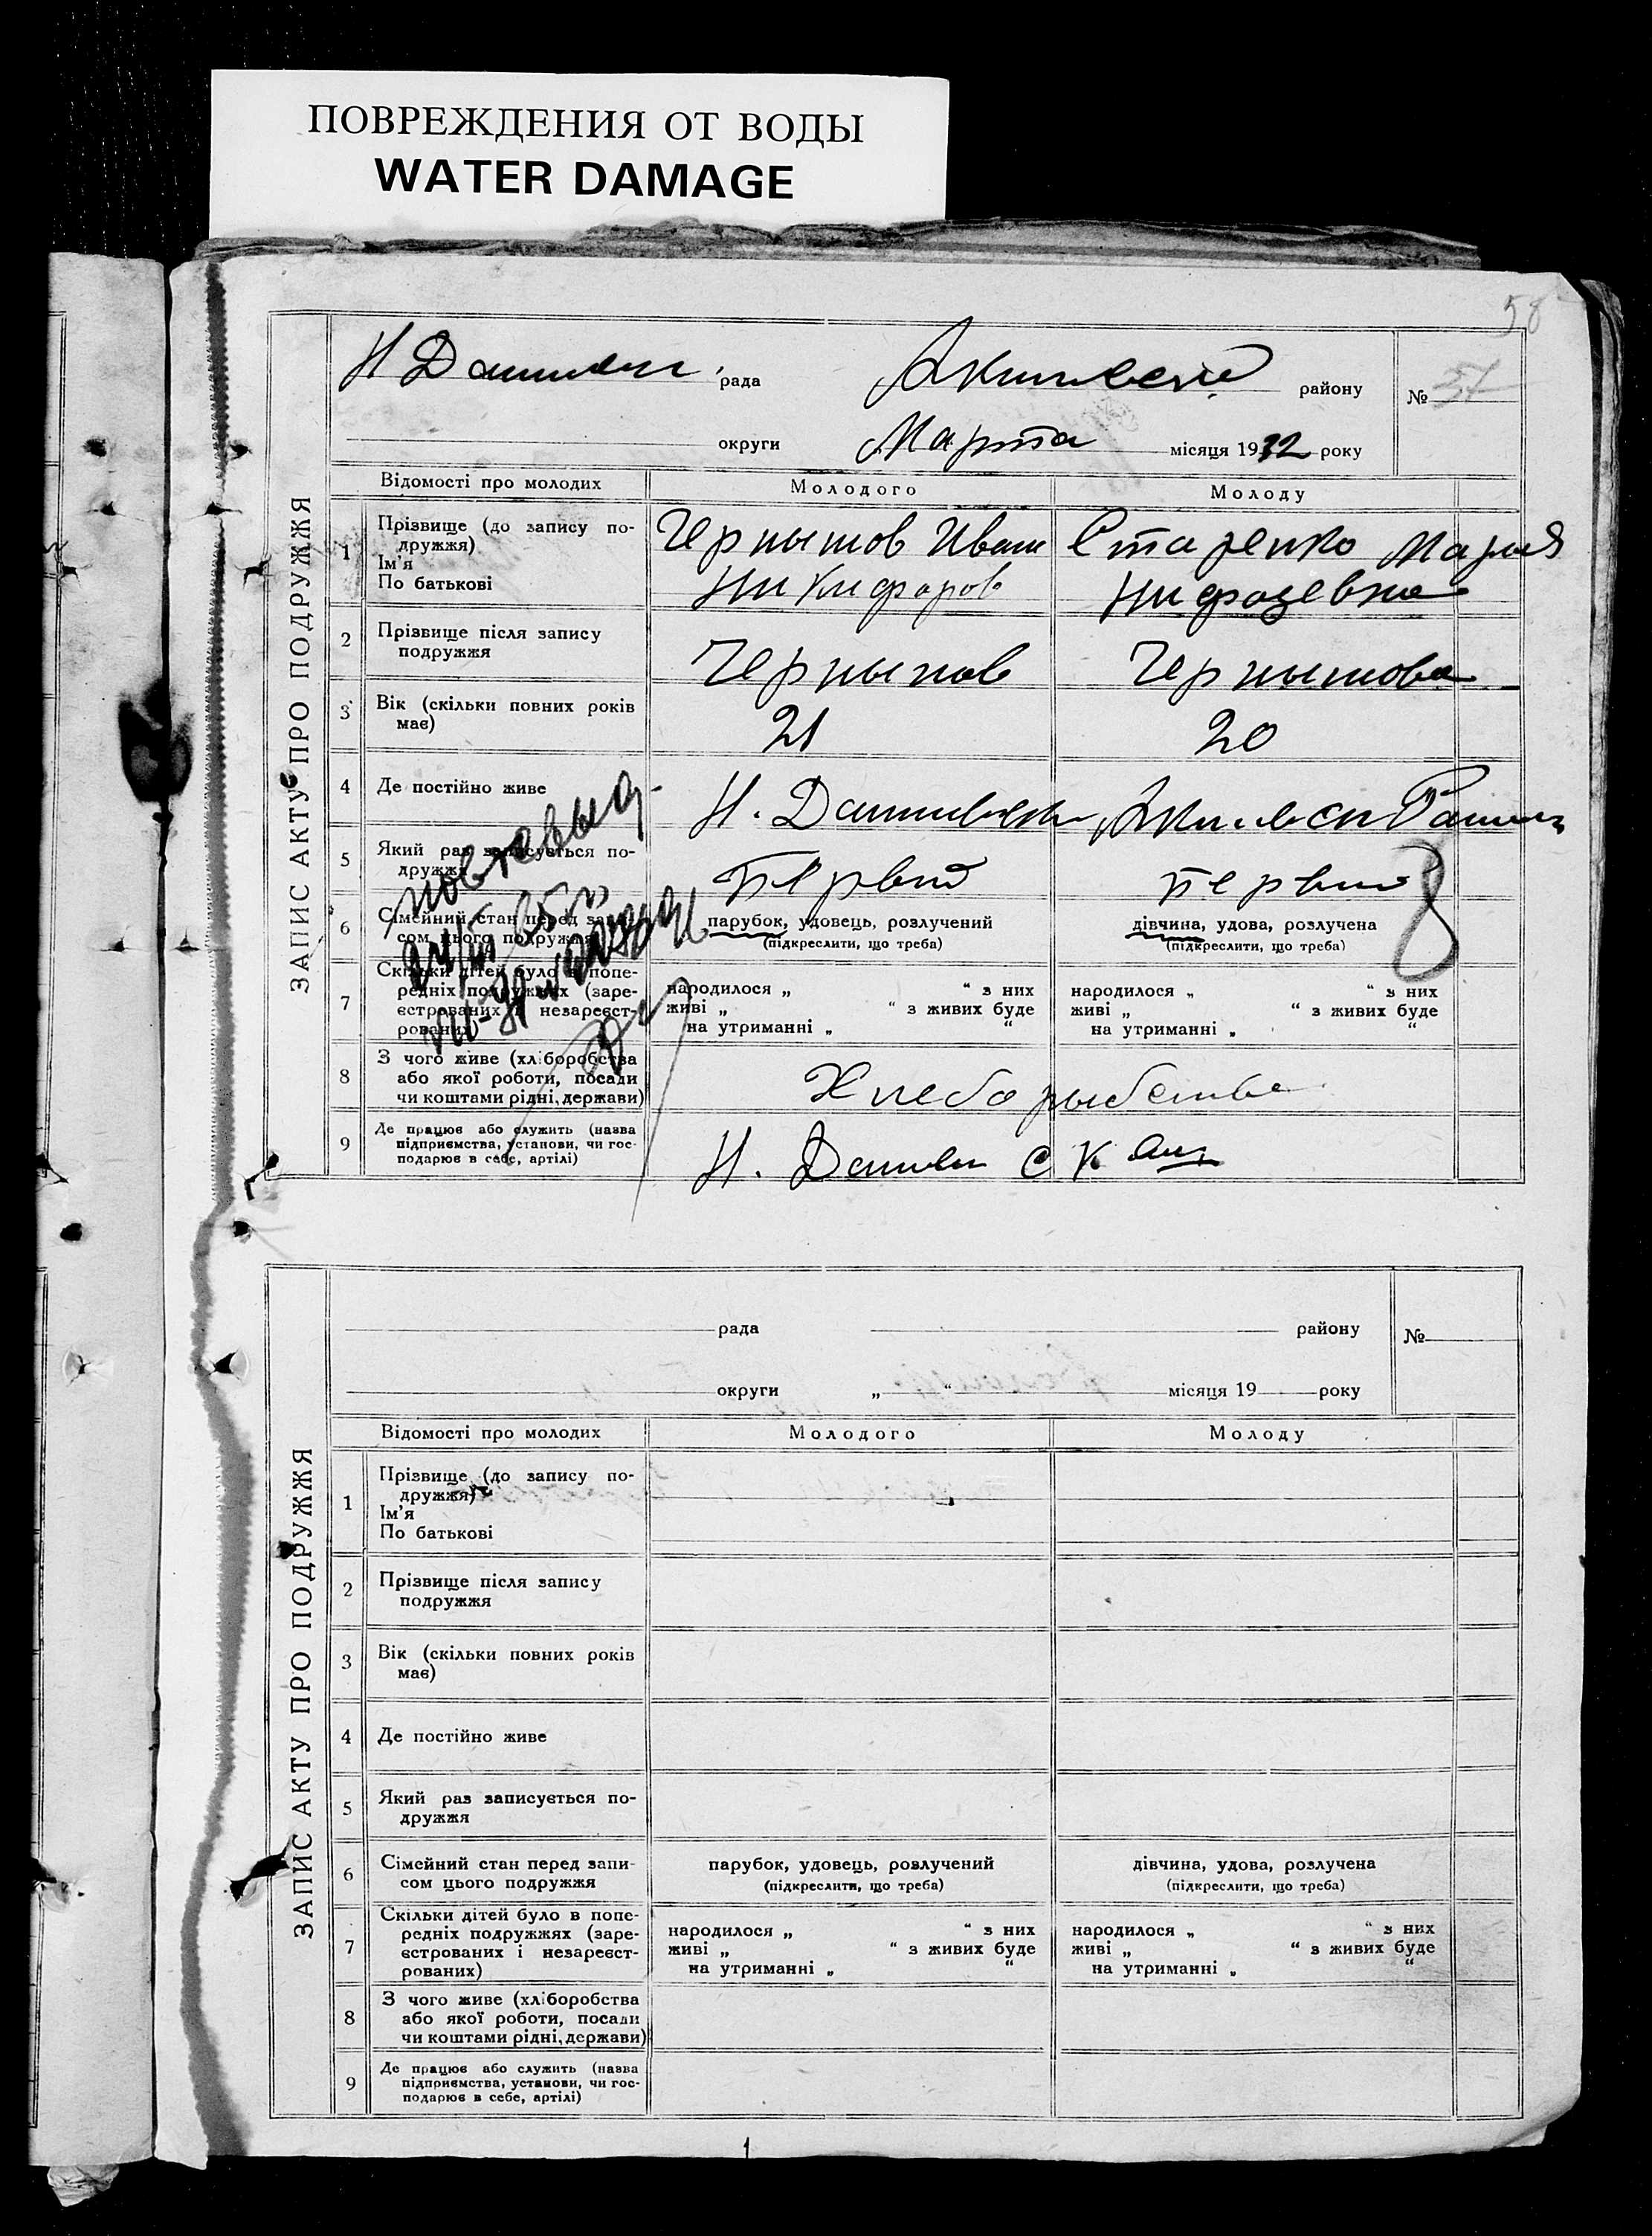 ПОВРЕЖДЕНИЯ ОТ ВОДЫ
WATER DAMAGE
58
ЗАПИС АКТУ ПРО ПОДРУЖЖЯ
рада
району
№ 57
округи Марта місяця 1932 року
Відомості про молодих Молодого Молоду
1 Прізвище (до запису по-
дружжя)
Ім'я
По батькові
Чернышов Иван
Никифоров
Стаценко Мария
2 Прізвище після запису
подружжя
Чернышов Чернышова
3 Вік (скільки повних років
має)
21 20
4 Де постійно живе
Н.
5 Який раз записується по-
дружжя
Первый первый
8
6 Сімейний стан перед запи-
сом цього подружжя
парубок, удовець, розлучений
(підкреслити, що треба)
дівчина, удова, розлучена
(підкреслити, що треба)
7 Скільки дітей було в попе-
редніх подружжях (заре-
єстрованих і незареєст-
рованих)
народилося „ “ з них
живі „ “ з живих буде
на утриманні „ “
народилося „ “ з них
живі „ “ з живих буде
на утриманні „ “
8 З чого живе (хліборобства
або якої роботи, посади
чи коштами рідні, держави)
9 Де працює або служить (назва
підприємства, установи, чи гос-
подарює в себе, артілі)
Н.
ЗАПИС АКТУ ПРО ПОДРУЖЖЯ
рада району №
округи „ “ місяця 19 року
Відомості про молодих Молодого Молоду
1 Прізвище (до запису по-
дружжя)
Ім'я
По батькові
2 Прізвище після запису
подружжя
3 Вік (скільки повних років
має)
4 Де постійно живе
5 Який раз записується по-
дружжя
6 Сімейний стан перед запи-
сом цього подружжя
парубок, удовець, розлучений
(підкреслити, що треба)
дівчина, удова, розлучена
(підкреслити, що треба)
7 Скільки дітей було в попе-
редніх подружжях (заре-
єстрованих і незареєст-
рованих)
народилося „ “ з них
живі „ “ з живих буде
на утриманні „ “
народилося „ “ з них
живі „ “ з живих буде
на утриманні „ “
8 З чого живе (хліборобства
або якої роботи, посади
чи коштами рідні, держави)
9 Де працює або служить (назва
підприємства, установи, чи гос-
подарює в себе, артілі)